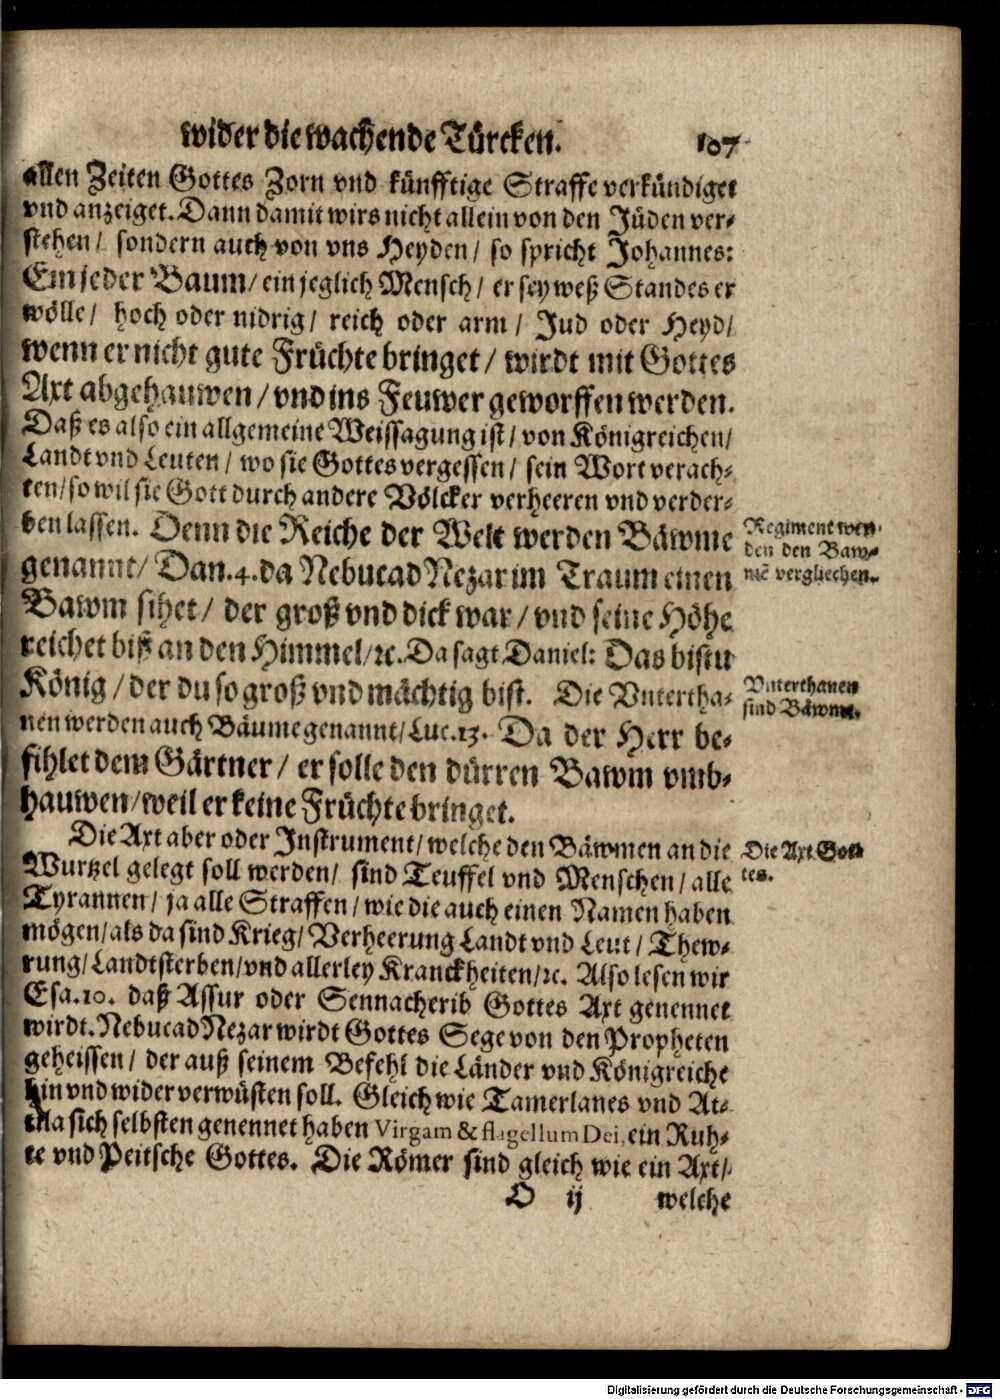 wider die wachende Türcken. 107
allen Zeiten Gottes Zorn vnd künfftige Straffe verkündiget
vnd anzeiget. Dann damit wirs nicht allein von den Jüden ver-
stehen / sondern auch von vns Heyden / so spricht Johannes:
Ein jeder Baum / ein jeglich Mensch / er sey weß Standes er
wölle / hoch oder nidrig / reich oder arm / Jud oder Heyd /
wenn er nicht gute Früchte bringet / wirdt mit Gottes
Axt abgehauwen / vnd ins Feuwer geworffen werden.
Daß es also ein allgemeine Weissagung ist / von Königreichen /
Landt vnd Leuten / wo sie Gottes vergessen / sein Wort verach-
ten / so wil sie Gott durch andere Völcker verheeren vnd verder-
ben lassen. Denn die Reiche der Welt werden Bäwme
genannt / Dan. 4. da NebucadNezar im Traum einen
Bawm sihet / der groß vnd dick war / vnd seine Höhe
reichet biß an den Himmel / ꝛc. Da sagt Daniel: Das bistu
König / der du so groß vnd mächtig bist. Die Vntertha-
nen werden auch Bäume genannt / Luc. 13. Da der Herr be-
fihlet dem Gärtner / er solle den dürren Bawm vmb-
hauwen / weil er keine Früchte bringet.
Die Axt aber oder Instrument / welche den Bäwmen an die
Wurtzel gelegt soll werden / sind Teuffel vnd Menschen / alle
Tyrannen / ja alle Straffen / wie die auch einen Namen haben
mögen / als da sind Krieg / Verheerung Landt vnd Leut / Thew-
rung / Landtsterben / vnd allerley Kranckheiten / ꝛc. Also lesen wir
Esa. 10. daß Assur oder Sennacherib Gottes Axt genennet
wirdt. NebucadNezar wirdt Gottes Sege von den Propheten
geheissen / der auß seinem Befehl die Länder vnd Königreiche
hin vnd wider verwüsten soll. Gleich wie Tamerlanes vnd At-
tila sich selbsten genennet haben Virgam & flagellum Dei, ein Ruh-
te vnd Peitsche Gottes. Die Römer sind gleich wie ein Axt /
O ij welche
Regiment wer-
den den Baw-
mē vergliechen.
Vnterthanen
sind Bäwme.
Die Axt Got-
tes.
Digitalisierung gefördert durch die Deutsche Forschungsgemeinschaft - DFG